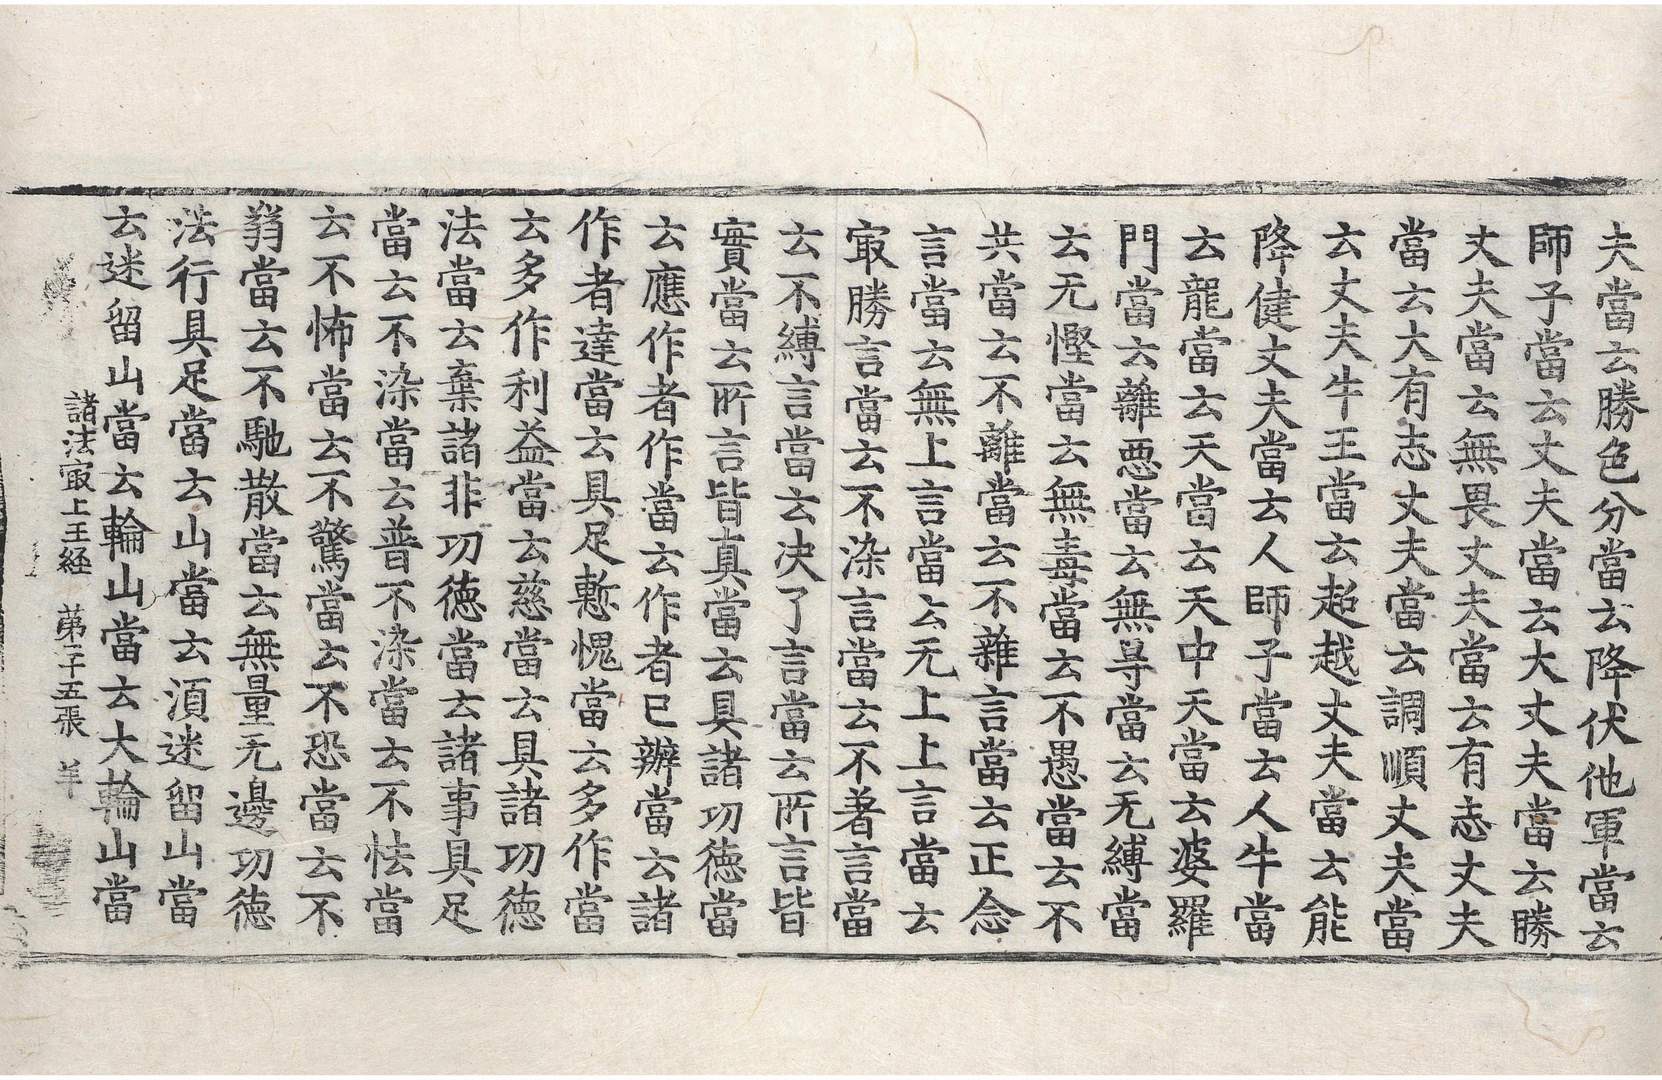 夫當云勝色分當云降伏他軍當云
師子當云丈夫當云大丈夫當云勝
丈夫當云無畏丈夫當云有志丈夫
當云大有志丈夫當云調順丈夫當
云丈夫牛王當云超越丈夫當云能
降健丈夫當云人師子當云人牛當
云龍當云天當云天中天當云婆羅
門當云離惡當云無㝵當云无縛當
云无慳當云無毒當云不愚當云不
共當云不離當云不雜言當云正念
言當云無上言當云无上上言當云
㝡勝言當云不染言當云不著言當
云不縛言當云决了言當云所言皆
實當云所言皆真當云具諸功德當
云應作者作當云作者已辦當云諸
作者達當云具足慙愧當云多作當
云多作利益當云慈當云具諸功德
法當云棄諸非功德當云諸事具足
當云不染當云普不染當云不怯當
云不怖當云不驚當云不恐當云不
㒵當云不馳散當云無量无邊功德
法行具足當云山當云湏迷留山當
云迷留山當云輪山當云大輪山當
諸法㝡上王経 苐二十五張 羊